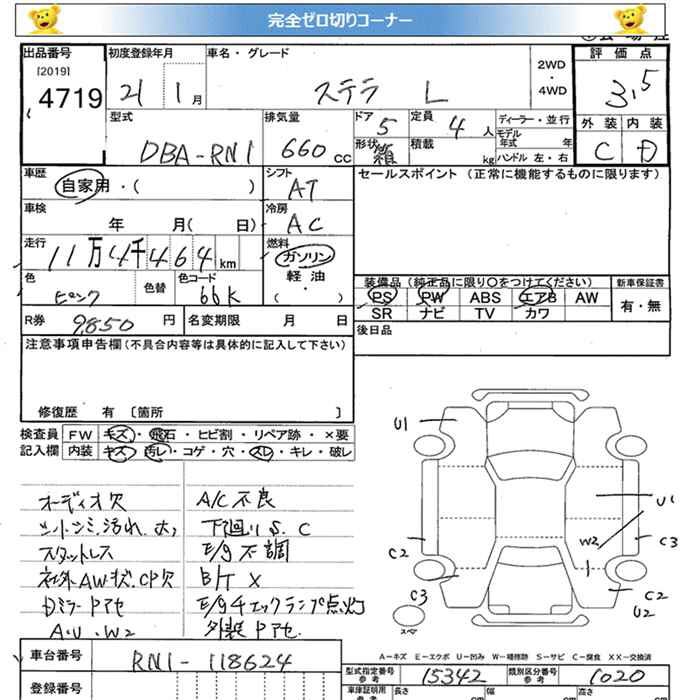 完全ゼロ切りコーナー
出品番号
[2019]
4719
初度登録年月
21 1 月
車名・グレード
ステラ L
2WD
・
4WD
評価点
3.5
外装 内装
C D
型式
DBA-RN1
排気量
660 cc
ドア 5
形状 箱
定員 4 人
積載 kg
ディーラー・並行
モデル
年式 年
ハンドル 左・右
車歴
自家用・( )
シフト
AT
車検
年 月( 日)
冷房
AC
走行
11万4千464 km
燃料
ガソリン
軽油
・( )
色
ピンク
色替
色コード
66K
R券 9,850 円
名変期限 月 日
セールスポイント (正常に機能するものに限ります)
装備品 (純正品に限り○をつけてください)
PS PW ABS エアB AW
SR ナビ TV カワ
新車保証書
有・無
後日品
注意事項申告欄(不具合内容等は具体的に記入して下さい)
修復歴 有 〔箇所 〕
検査員
記入欄
FW キズ・飛石・ヒビ割・リペア跡・×要
内装 キズ・汚レ・コゲ・穴・スレ・キレ・破レ
オーディオ欠
シートシミ.汚れ.
スタットレス
社外AW状.CP欠
Dミラー Pアセ
A.U.W2
A/C不良
下廻り S.C
E/g不調
B/T X
E/gチェックランプ点灯
外装Pアセ.
U1
U1
W2
C3
C2
C3
C2
U2
スペア
A-キズ E-エクボ U-凹み W-補修跡 S-サビ C-腐食 XX-交換済
車台番号
RN1-118624
登録番号
型式指定番号
参考
15342
類別区分番号
参考
1020
車庫証明用
参考
長さ cm
幅 cm
高さ cm